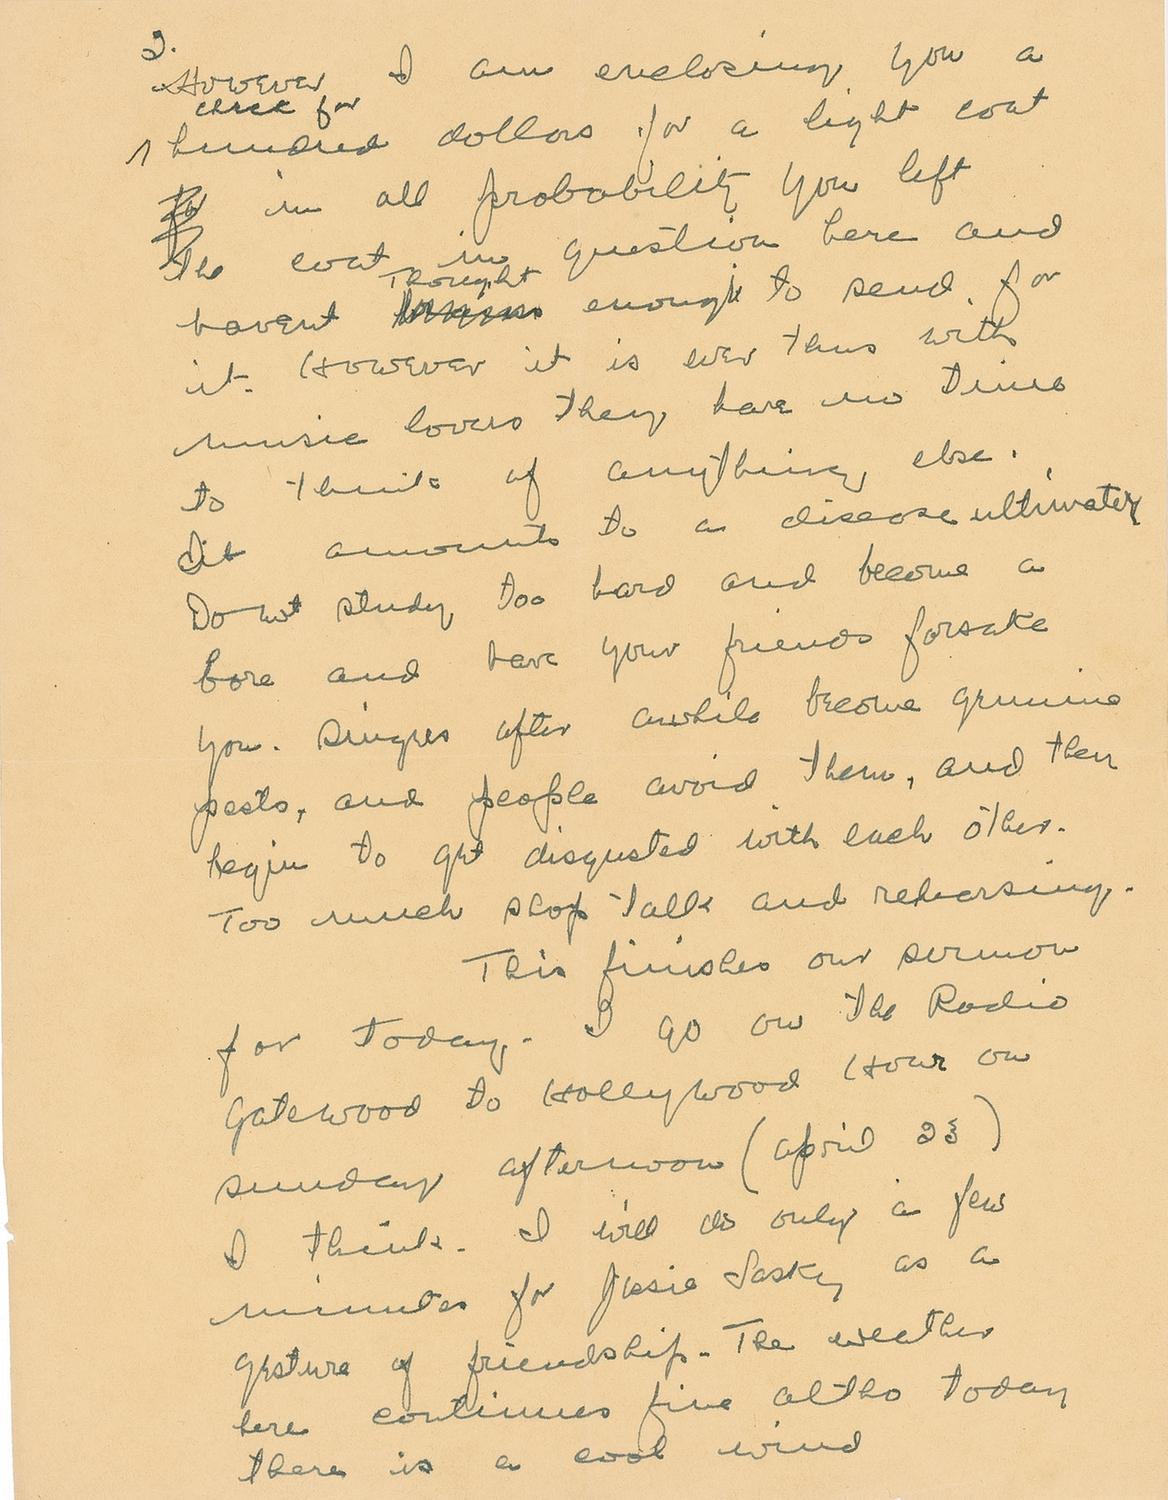 2.
However I am enclosing you a
check for
hundred dollars for a light coat
in all probability you left
the coat in question here and
Thought
havent enough to send for
it. However it is ever thus with
music lovers they have no time
to think of anything else.
It amounts to a disease ultimately
Do not study too hard and become a
bore and have your friends forsake
you. Singers after awhile become genuine
pests, and people avoid them, and then
begin to get disgusted with each other.
Too much shop talk and rehearsing.
This finishes our sermon
for today. I go on the Radio
Gatewood to Hollywood Hour on
sunday afternoon (april 23)
I think. I will do only a few
minutes for Jesie Lasky as a
gesture of friendship. The weather
here continues fine altho today
there is a cool wind